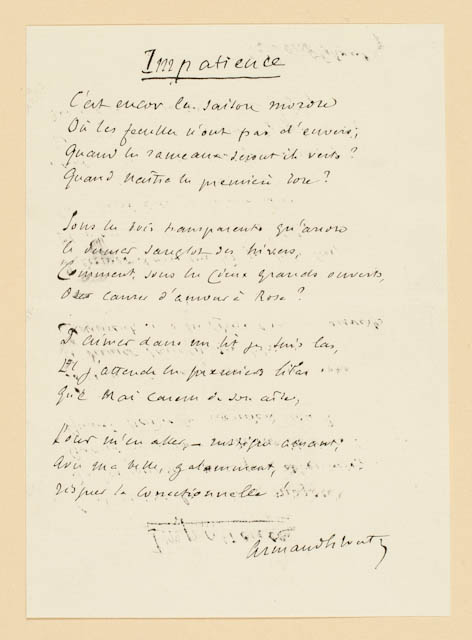 Impatience
C'est encor la saison morose
Où les feuilles n'ont pas d'envers;
Quand les rameaux seront-ils verts?
Quand naîtra la première rose?
Sous les bois transparents qu'arrose
Le dernier sanglot des hivers,
Comment, sous les cieux grands ouverts,
causer d'amour à Rose?
D'aimer dans un lit je suis las,
Et j'attends les premiers lilas
Que Mai caresse de son aile,
Pour m'en aller, – rustique amant,
Avec ma belle, galamment,
risquer la correctionnelle!
Armand Silvestre